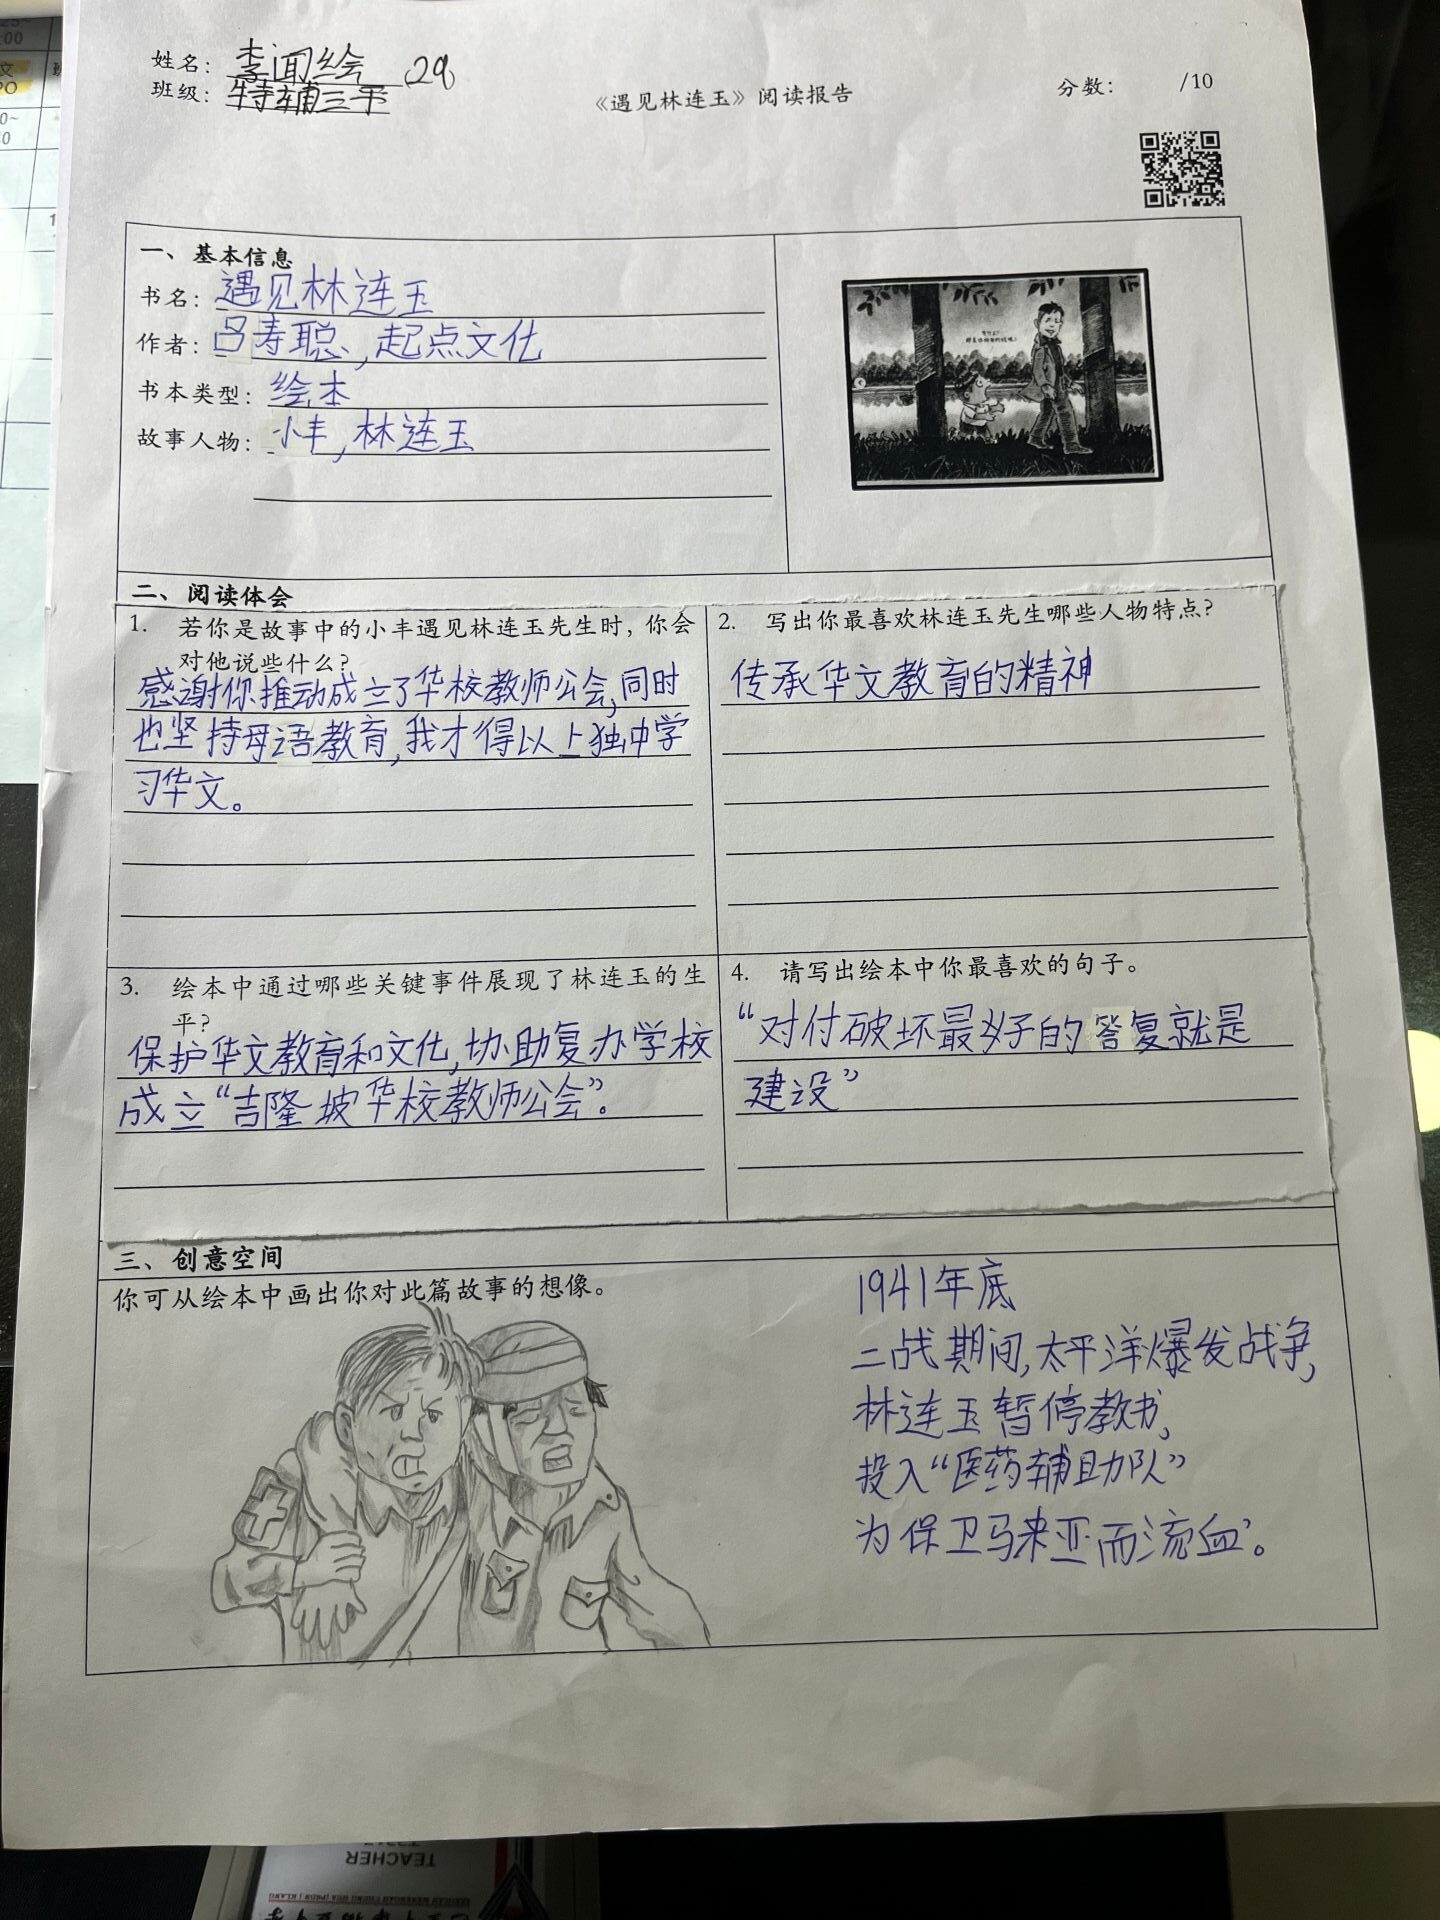 姓名：李闻绘 29
班级：特辅三平
《遇见林连玉》阅读报告
分数： /10
一、基本信息
书名：遇见林连玉
作者：吕寿聪，起点文化
书本类型：绘本
故事人物：小丰，林连玉
二、阅读体会
1. 若你是故事中的小丰遇见林连玉先生时，你会
对他说些什么？
感谢你推动成立了华校教师公会，同时
也坚持母语教育，我才得以上独中学
习华文。
2. 写出你最喜欢林连玉先生哪些人物特点？
传承华文教育的精神
3. 绘本中通过哪些关键事件展现了林连玉的生
平？
保护华文教育和文化，协助复办学校
成立“吉隆坡华校教师公会”。
4. 请写出绘本中你最喜欢的句子。
“对付破坏最好的答复就是
建设”
三、创意空间
你可从绘本中画出你对此篇故事的想像。
1941年底
二战期间，太平洋爆发战争，
林连玉暂停教书，
投入“医药辅助队”
为保卫马来亚而流血。
TEACHER